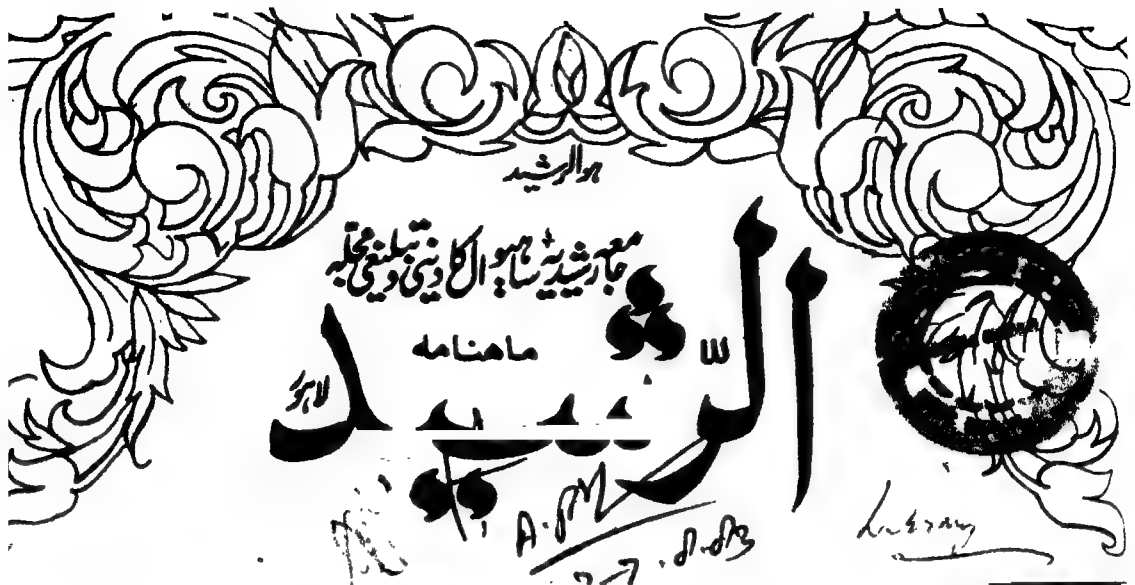 ہوالرشید
جامعہ رشیدیہ ساہیوال کا دینی و تبلیغی مجلّہ
ماھنامہ
الرّشید
لاہور